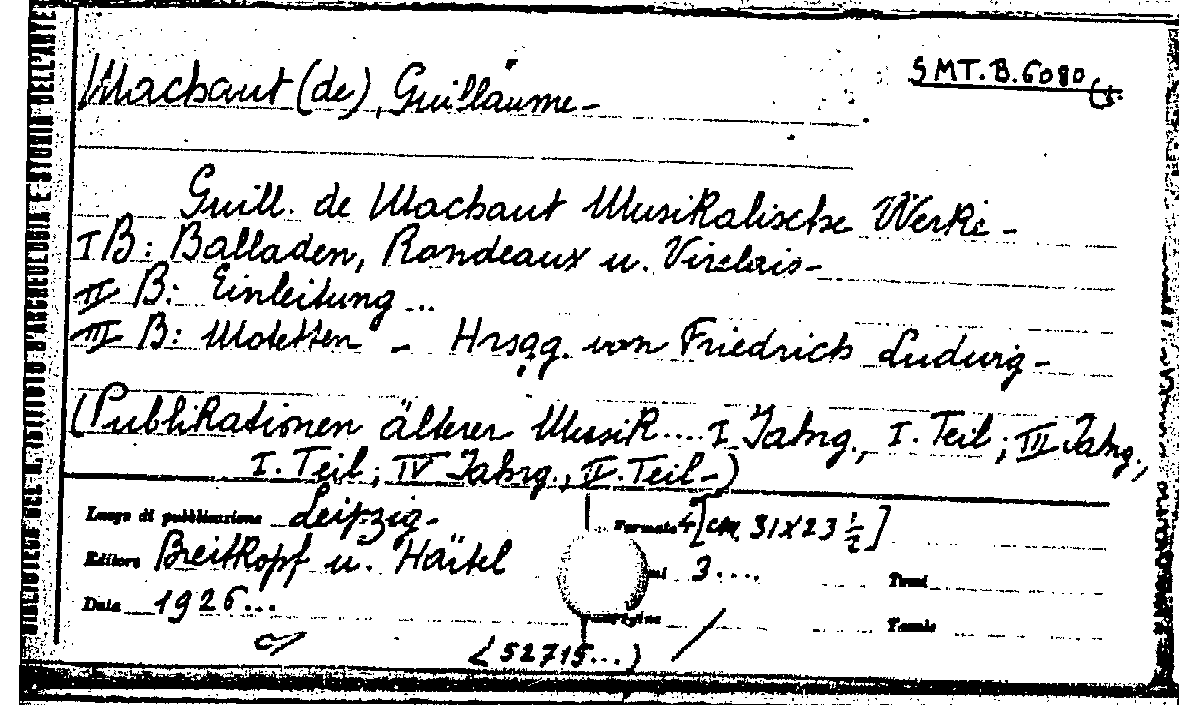 BIBLIOTECA DEL R. ISTITUTO D'ARCHEOLOGIA E STORIA DELL'ARTE
Machaut (de), Guillaume -
SMT.B.6080
Guill. de Machaut Musikalische Werke -
I B: Balladen, Rondeaux u. Virelais -
II B: Einleitung ...
III B: Motetten - Hrsgg. von Friedrich Ludwig -
(Publikationen älterer Musik .... I Jahrg., I. Teil; III Jahrg.,
I. Teil; IV Jahrg., II. Teil -)
Luogo di pubblicazione Leipzig -
Formato 4° [cm 31x23 1/2]
Editore Breitkopf u. Härtel
3....
Tomi
Data 1926...
Tavole
(52715...)